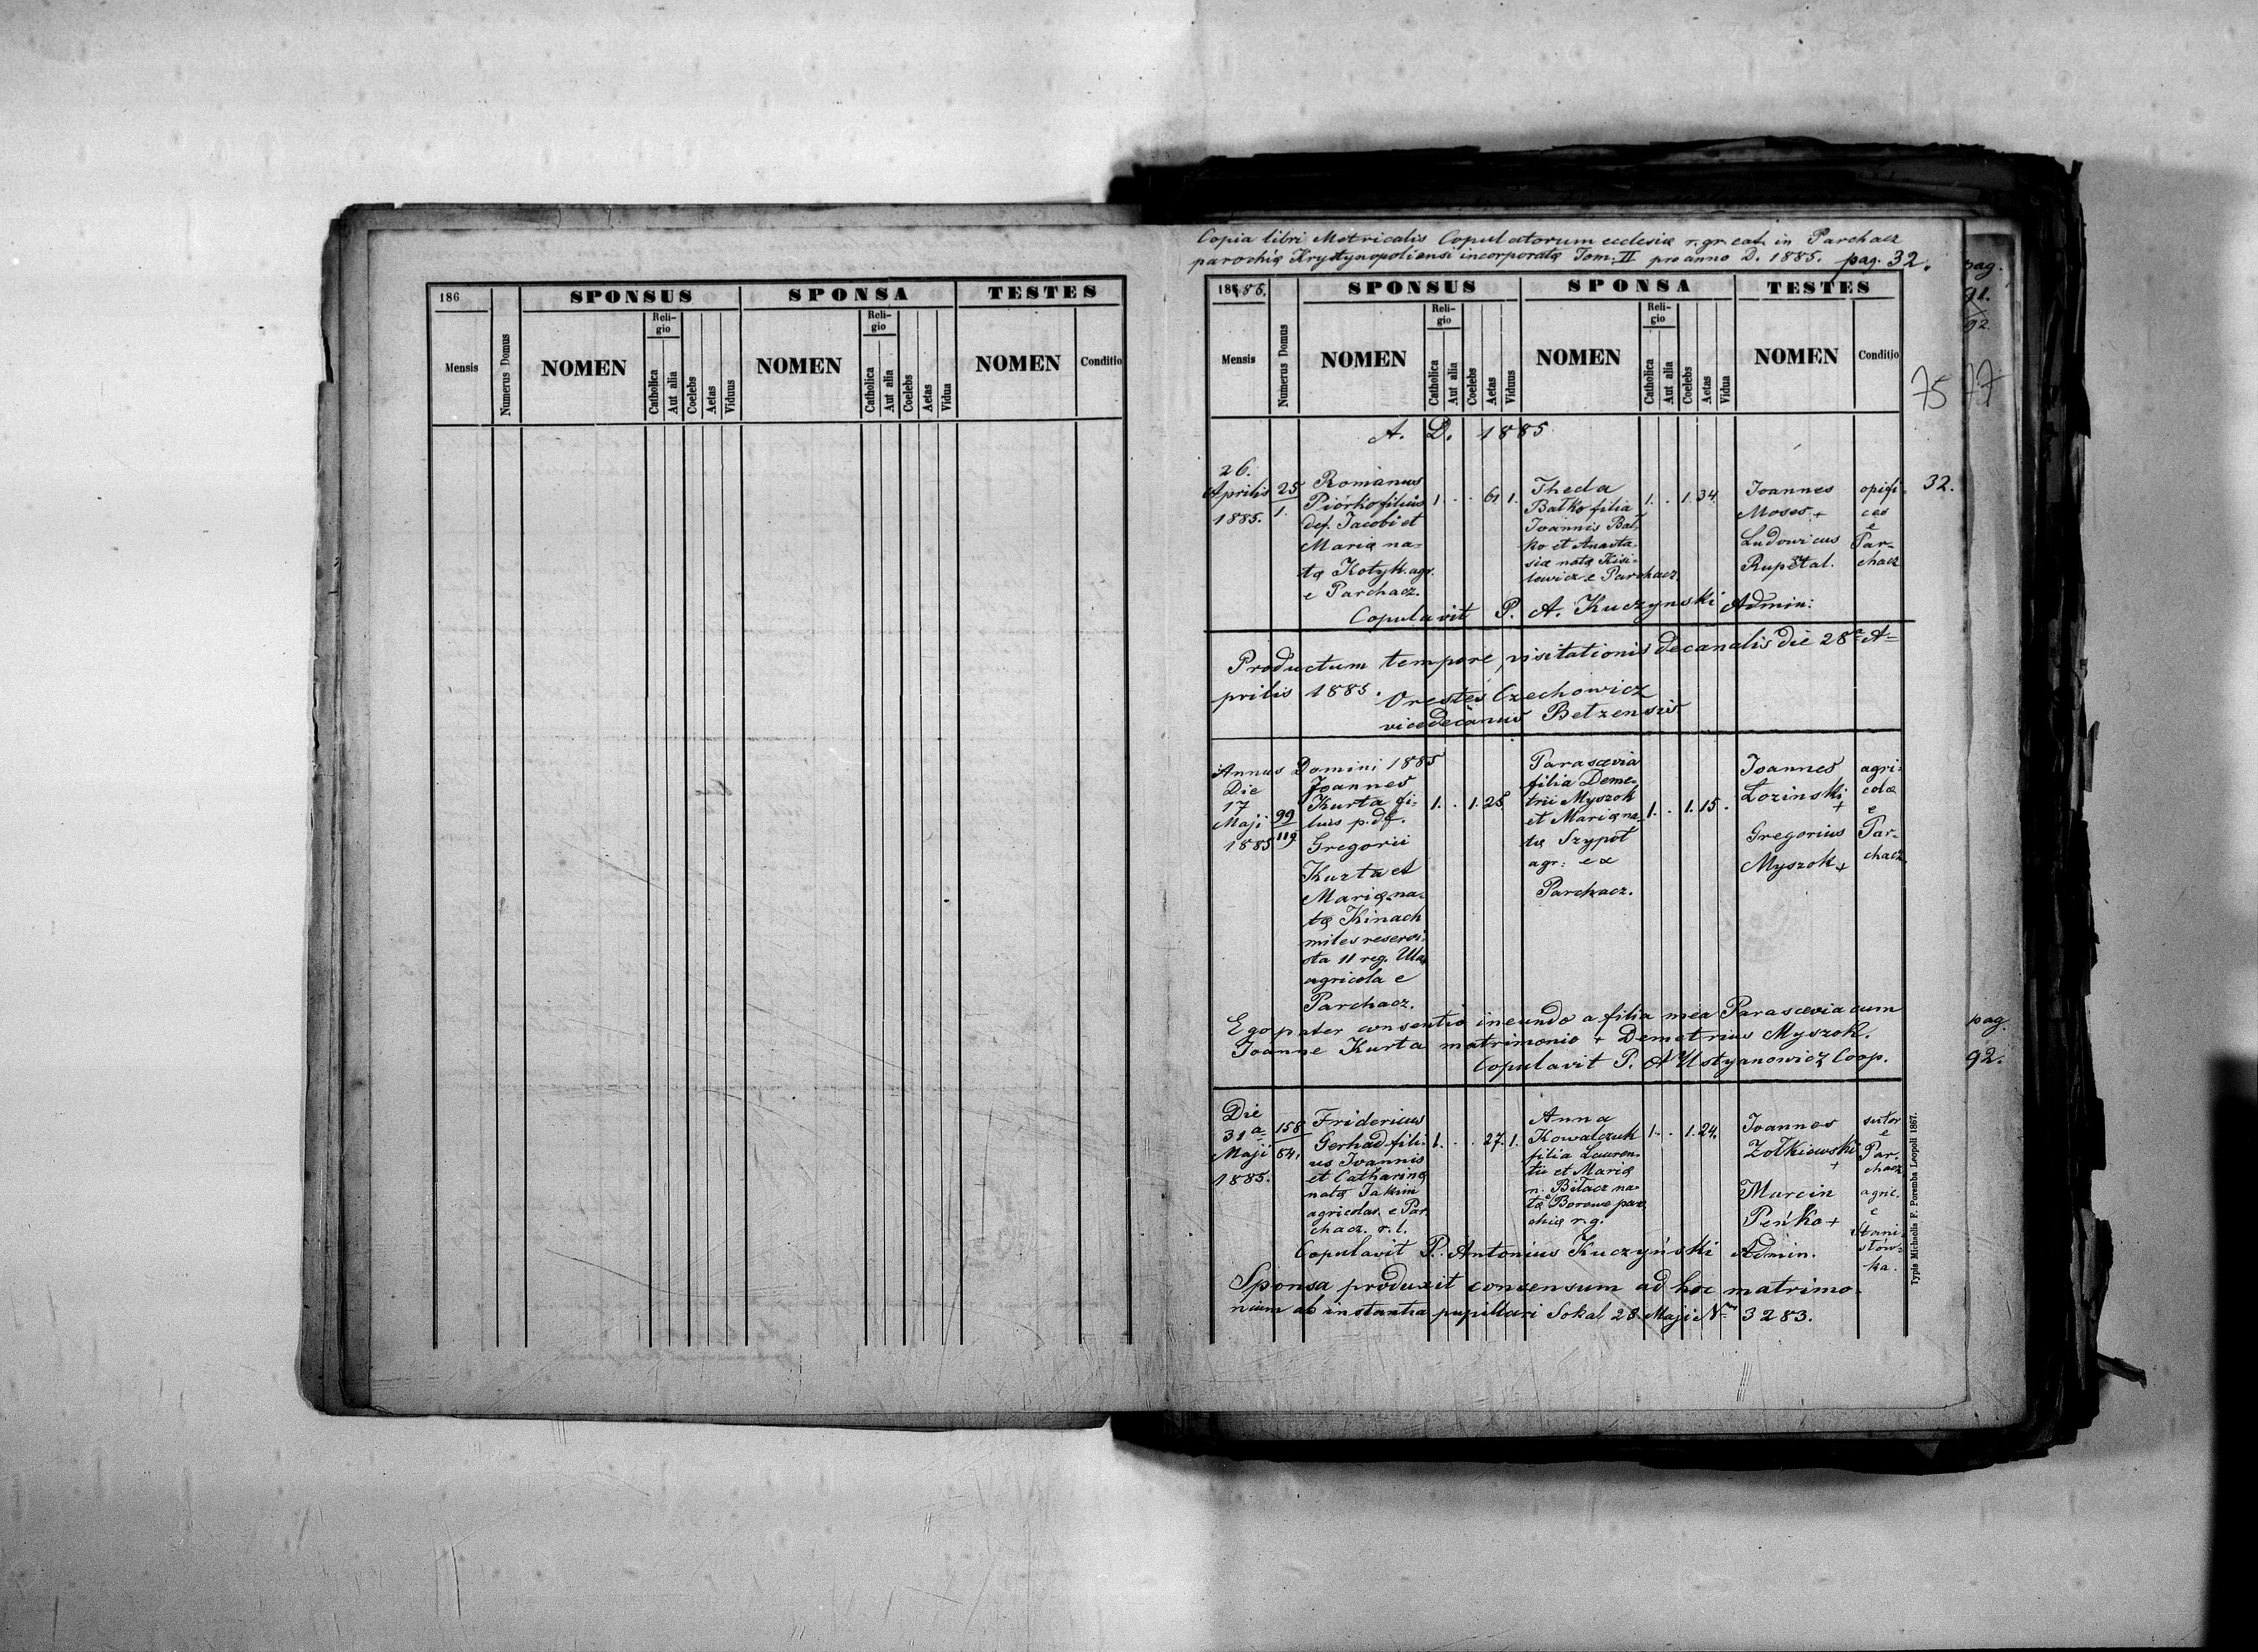 186
SPONSUS
SPONSA
TESTES
Mensis
Numerus Domus
NOMEN
Reli-
gio
Catholica
Aut alia
Coelebs
Aetas
Viduus
NOMEN
Reli-
gio
Catholica
Aut alia
Coelebs
Aetas
Vidua
NOMEN
Conditio
Copia libri Metricalis Copulatorum ecclesiæ r. gr. cat. in Parchacz
parochiæ Krystynopoliensi incorporatæ Tom. II pro anno D. 1885. pag. 32.
pag.
91.
92
75
77
1885.
SPONSUS
SPONSA
TESTES
Mensis
Numerus Domus
NOMEN
Reli-
gio
Catholica
Aut alia
Coelebs
Aetas
Viduus
NOMEN
Reli-
gio
Catholica
Aut alia
Coelebs
Aetas
Vidua
NOMEN
Conditio
A. D. 1885
26.
Aprilis
1885.
25
1.
Romanus
Piórko filius
def. Jacobi et
Mariæ na-
tæ Kotyk. agr.
e Parchacz.
1. . . 61 1.
Theda
Bałko filia
Joannis Bał-
ko et Anasta-
siæ natæ Kisi-
lewicz e Parchacz
1. . 1. 34.
Joannes
Moses +
Ludovicus
Rupetal.
opifi-
ces
e
Par-
chacz
32.
Copulavit P. A. Kuczynski Admin:
Productum tempore visitationis decanalis die 28ª A-
prilis 1885.
Orestes Czechowicz
vicedecanus Betzensis
Annus Domini 1885
Die
17
Maji
1885
99
119
Joannes
Kurta fi-
lius p. df.
Gregorii
Kurta et
Mariæ na-
tæ Kinach
miles reservi-
sta 11 reg. Ula.
agricola e
Parchacz.
1. . 1. 25
Parascevia
filia Deme-
trii Myszok
et Mariæ na-
tæ Szypot
agr: ex
Parchacz.
1. . 1. 15.
Joannes
Lozinski
+
Gregorius
Myszok +
agri-
colæ
e
Par-
chacz.
Ego pater consentio ineundo a filia mea Parascevia cum
Joanne Kurta matrimonio + Demetrius Myszok.
Copulavit P. A Ustyanowicz Coop.
pag.
92.
Die
31ª
Maji
1885.
158
64.
Fridericus
Gerhad fili-
us Joannis
et Catharinæ
natæ Jakim
agricolas e Par-
chacz. r. l.
1. . . 27. 1.
Anna
Kowalczuk
filia Lauren-
tii et Mariæ
n. Biłacz na-
ta e Borowe par-
ochiæ r. g.
1. . 1. 24.
Joannes
Zołkiewski
+
Marcin
Peńko +
sutor
e
Par-
chacz
agric.
e
Stani-
słów-
ka.
Copulavit P. Antonius Kuczyński Admin.
Sponsa produxit consensum ad hoc matrimo-
nium ab instantia pupillari Sokal 28 Maji Nrus 3283.
Typis Michaelis F. Poremba Leopoli 1867.